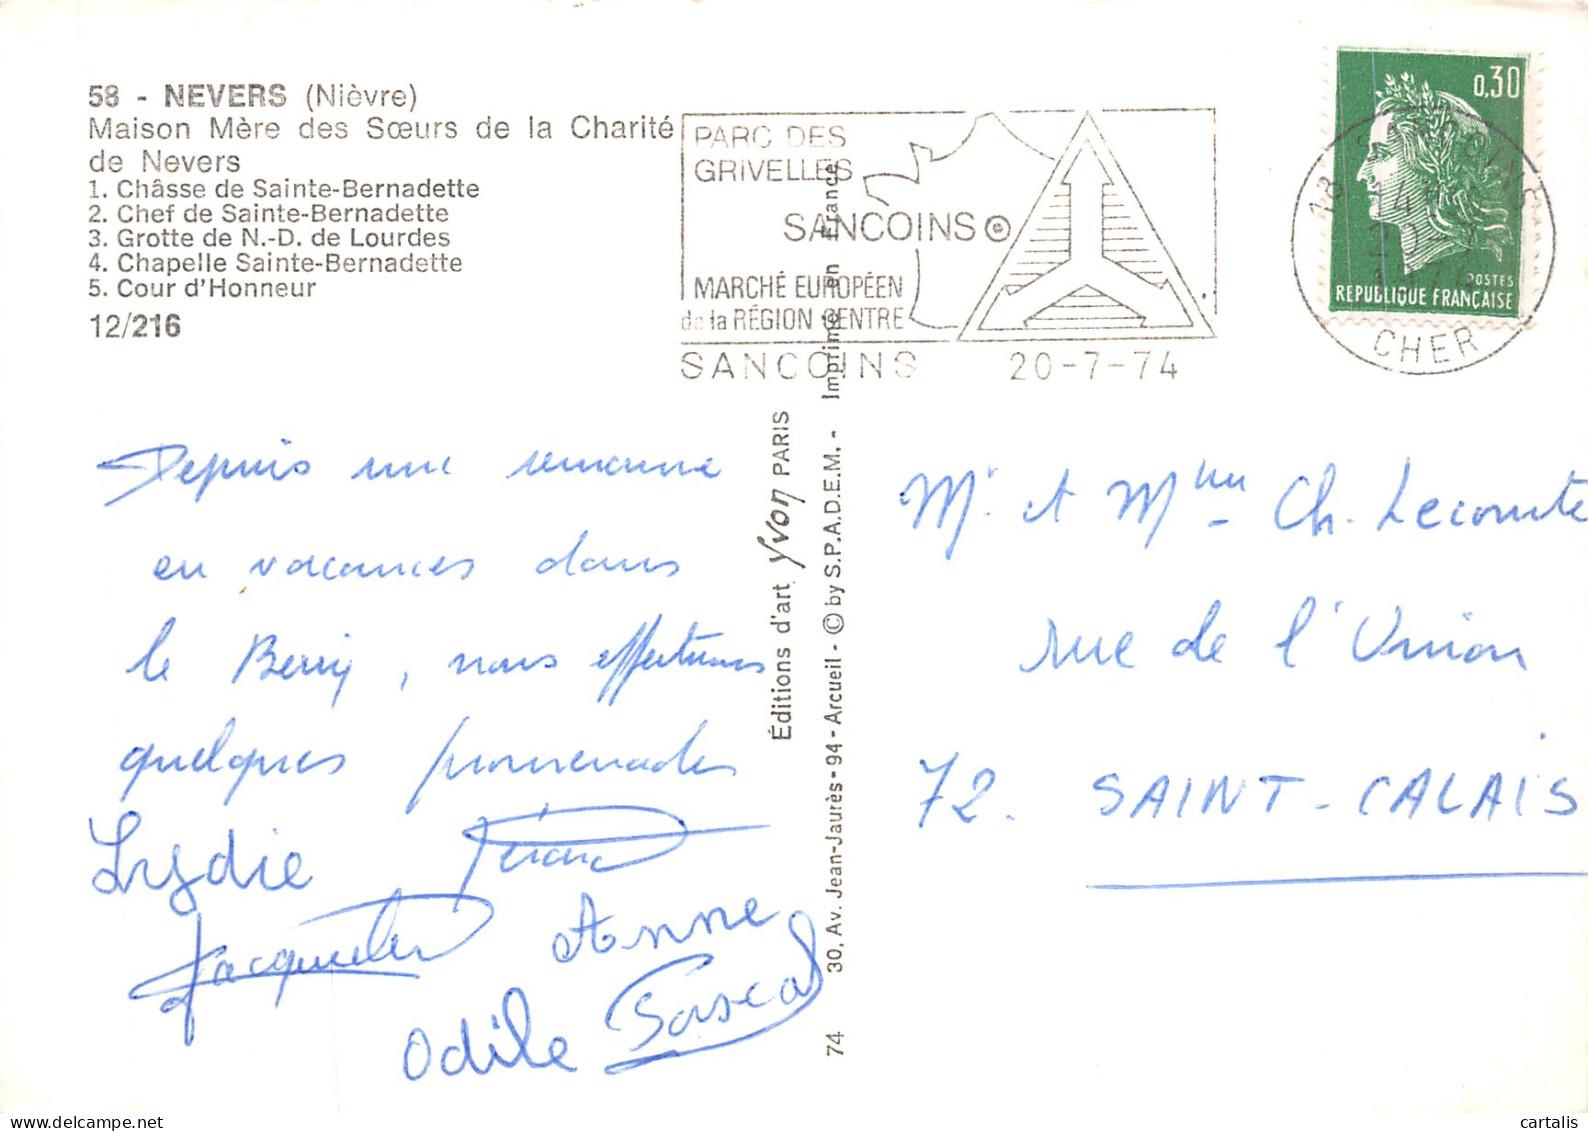 58 - NEVERS (Nièvre)
Maison Mère des Sœurs de la Charité
de Nevers
1. Châsse de Sainte-Bernadette
2. Chef de Sainte-Bernadette
3. Grotte de N.-D. de Lourdes
4. Chapelle Sainte-Bernadette
5. Cour d'Honneur
12/216
PARC DES
GRIVELLES
SANCOINS
MARCHÉ EUROPÉEN
de la RÉGION CENTRE
SANCOINS 20-7-74
0,30
POSTES
REPUBLIQUE FRANÇAISE
18 SANCOINS
14H
20-7
1974
CHER
Depuis une semaine
en vacances dans
le Berry, nous effectuons
quelques promenades
Lydie Gérard
Jacqueline Anne
Odile Pascal
Éditions d'art Yvon PARIS
30, Av. Jean-Jaurès - 94 - Arcueil - © by S.P.A.D.E.M. - Imprimé en France
74
Mr et Mme Ch. Lecomte
rue de l'Union
72. SAINT-CALAIS
cartalis